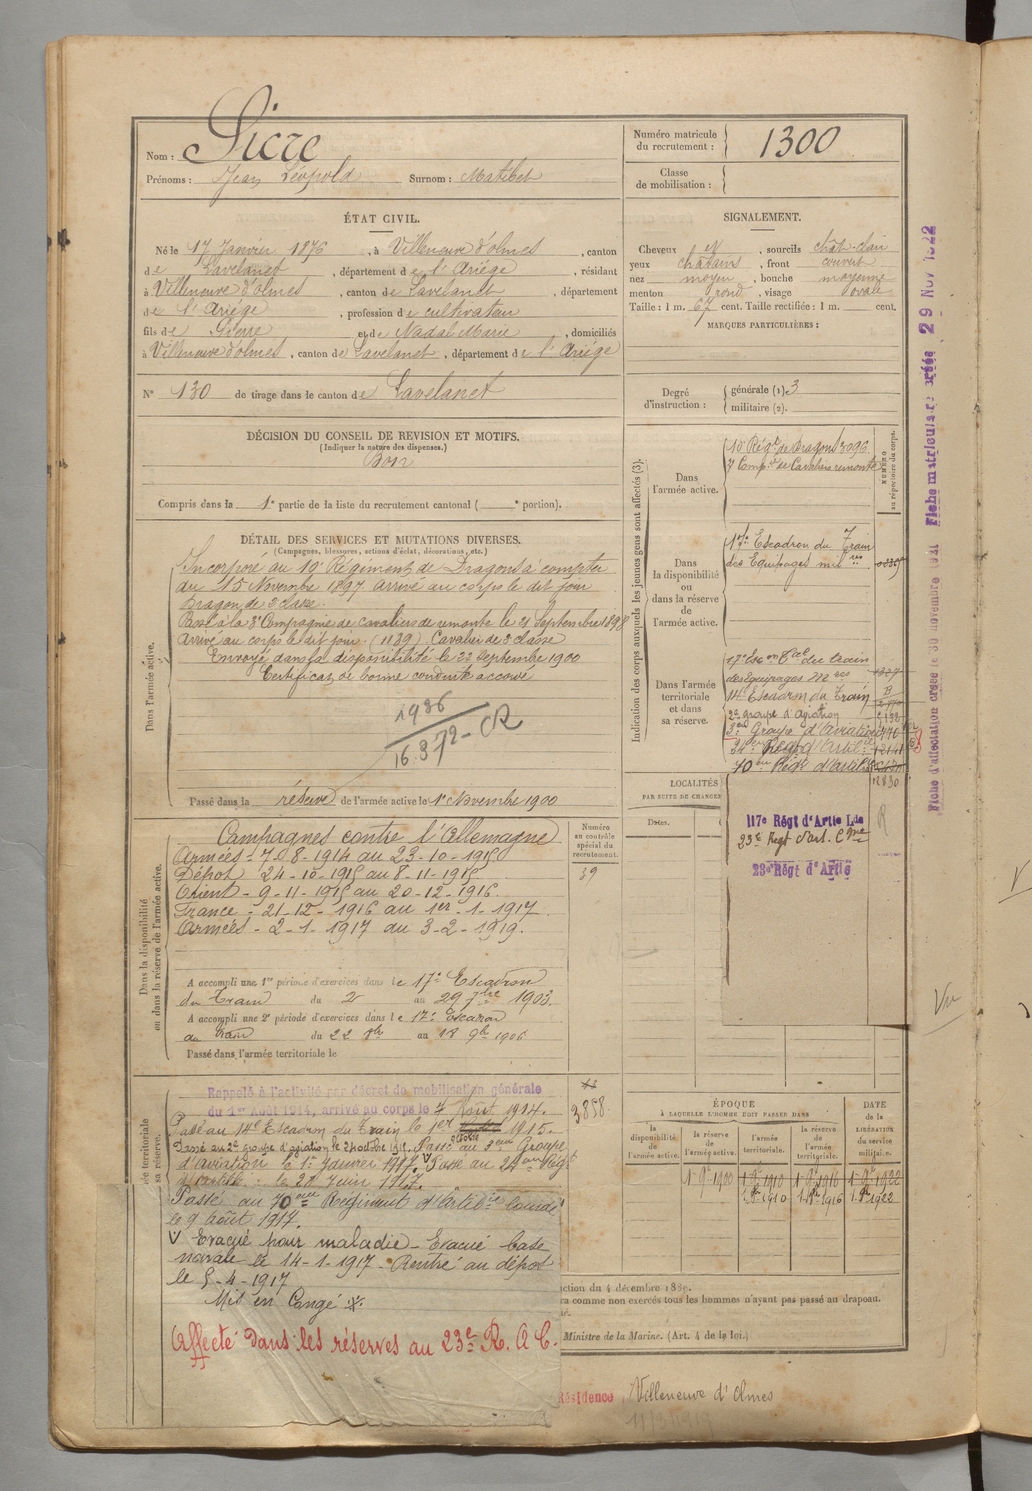 Nom : Sicre
Prénoms : Jean Léopold Surnom : Matibet
Numéro matricule du recrutement : 1300
Classe de mobilisation :
ÉTAT CIVIL.
Né le 17 Janvier 1876, à Villeneuve d'olmes, canton
de Lavelanet, département de l'Ariége, résidant
à Villeneuve d'olmes, canton de Lavelanet, département
de l'Ariège, profession de cultivateur
fils de Pierre et de Nadal Marie, domiciliés
à Villeneuve d'olmes, canton de Lavelanet, département de l'Ariége
N° 130 de tirage dans le canton de Lavelanet
SIGNALEMENT.
Cheveux N, sourcils chât-clair
yeux châtains, front couvert
nez moyen, bouche moyenne
menton rond, visage ovale
Taille : 1 m. 67 cent. Taille rectifiée : 1 m. cent.
MARQUES PARTICULIÈRES :
Degré d'instruction : générale (1). 3
militaire (2).
DÉCISION DU CONSEIL DE REVISION ET MOTIFS.
(Indiquer la nature des dispenses.)
Bon
Compris dans la 1e partie de la liste du recrutement cantonal ( e portion).
DÉTAIL DES SERVICES ET MUTATIONS DIVERSES.
(Campagnes, blessures, actions d'éclat, décorations, etc.)
Dans l'armée active.
Incorporé au 10e Régiment de Dragons à compter
du 15 Novembre 1897 arrivé au corps le dit jour
Dragon de 2e classe.
Passé à la 3e Compagnie de cavaliers de remonte le 21 Septembre 1898
Arrivé au corps le dit jour (1139). Cavalier de 2e classe
Envoyé dans la disponibilité le 22 Septembre 1900
Certificat de bonne conduite accordé
1936
16.372 - CR
Passé dans la réserve de l'armée active le 1er Novembre 1900
Dans la disponibilité ou dans la réserve de l'armée active.
Campagnes contre l'Allemagne
Armées - 7-8-1914 au 23-10-1915
Dépot 24-10-1915 au 8-11-1915
Orient - 9-11-1915 au 20-12-1916.
France - 21-12-1916 au 1er-1-1917
Armées - 2-1-1917 au 3-2-1919.
Numéro au contrôle spécial du recrutement.
39
A accompli une 1re période d'exercices dans le 17e Escadron
du Train du 2 au 29 7bre 1903.
A accompli une 2e période d'exercices dans le 17e Escadron
du Train du 22 8bre au 18 9bre 1906
Passé dans l'armée territoriale le
Rappelé à l'activité par décret de mobilisation générale
du 1er Août 1914, arrivé au corps le 7 Août 1914.
Passé au 14e Escadron du Train le 1er Octobre 1915.
Passé au 2e groupe d'aviation le 2 octobre 1915. Passé au 3eme Groupe
d'aviation le 1er Janvier 1917. V Passé au 24eme Régt
d'artillie : le 27 Juin 1917.
Passé au 70eme Régiment d'artilie lourde
le 9 août 1917.
V Evacué pour maladie - Evacué base
navale le 14-1-1917 - Rentré au dépot
le 5-4-1917
Mis en Congé
Affecté dans les réserves au 23e R. A. C.
3858
Indication des corps auxquels les jeunes gens sont affectés (3).
Dans l'armée active.
10e Régt de Dragons 3096
3e Compie de Cavaliers remonte
NUMÉRO au répertoire du corps.
Dans la disponibilité ou dans la réserve de l'armée active.
17e Escadron du Train
des Equipages mil res
Dans l'armée territoriale et dans sa réserve.
17e Escon Tal du train
des Equipages Mres
14e Escadron du Train
2e groupe d'aviation
3e Groupe d'Aviation
24eme Regt d'Artil.
70eme Régt d'artil.
12830
LOCALITÉS
PAR SUITE DE CHANGE
Dates.
117e Régt d'Artie Lde
23e Regt d'art. Cme
23e Régt d'Artie
ÉPOQUE
À LAQUELLE L'HOMME DOIT PASSER DANS
la disponibilité de l'armée active.
la réserve de l'armée active.
l'armée territoriale.
la réserve de l'armée territoriale.
DATE de la LIBÉRATION du service militaire.
1er 9bre 1900 1er 9bre 1910 1er 9bre 1916 1er 9bre 1922
1.8bre 1910 1.8bre 1916 1.8bre 1922
ction du 4 décembre 1889.
ra comme non exercés tous les hommes n'ayant pas passé au drapeau.
Ministre de la Marine. (Art. 4 de la loi.)
Résidence, Villeneuve d'Olmes
Fiche d'affectation créée le 30 novembre 1931 Fiche matriculaire créée 29 NOV 1922
Vu